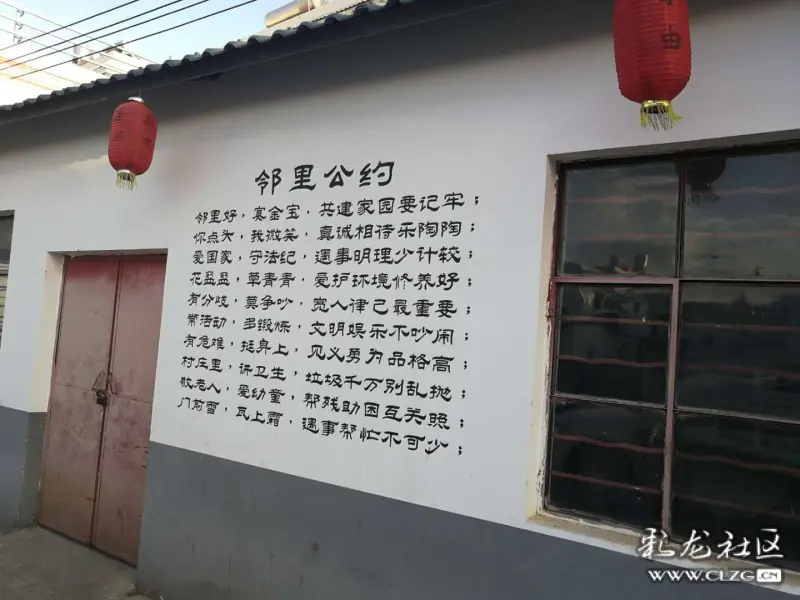 由
邻里公约
邻里好，赛金宝，共建家园要记牢；
你点头，我微笑，真诚相待乐陶陶；
爱国家，守法纪，遇事明理少计较；
花盈盈，草青青，爱护环境修养好；
有分歧，莫争吵，宽人律己最重要；
常活动，多锻炼，文明娱乐不吵闹；
有危难，挺身上，见义勇为品格高；
村庄里，讲卫生，垃圾千万别乱抛；
敬老人，爱幼童，帮残助困互关照；
门前雪，瓦上霜，遇事帮忙不可少；
彩龙社区
WWW.CLZG.CN